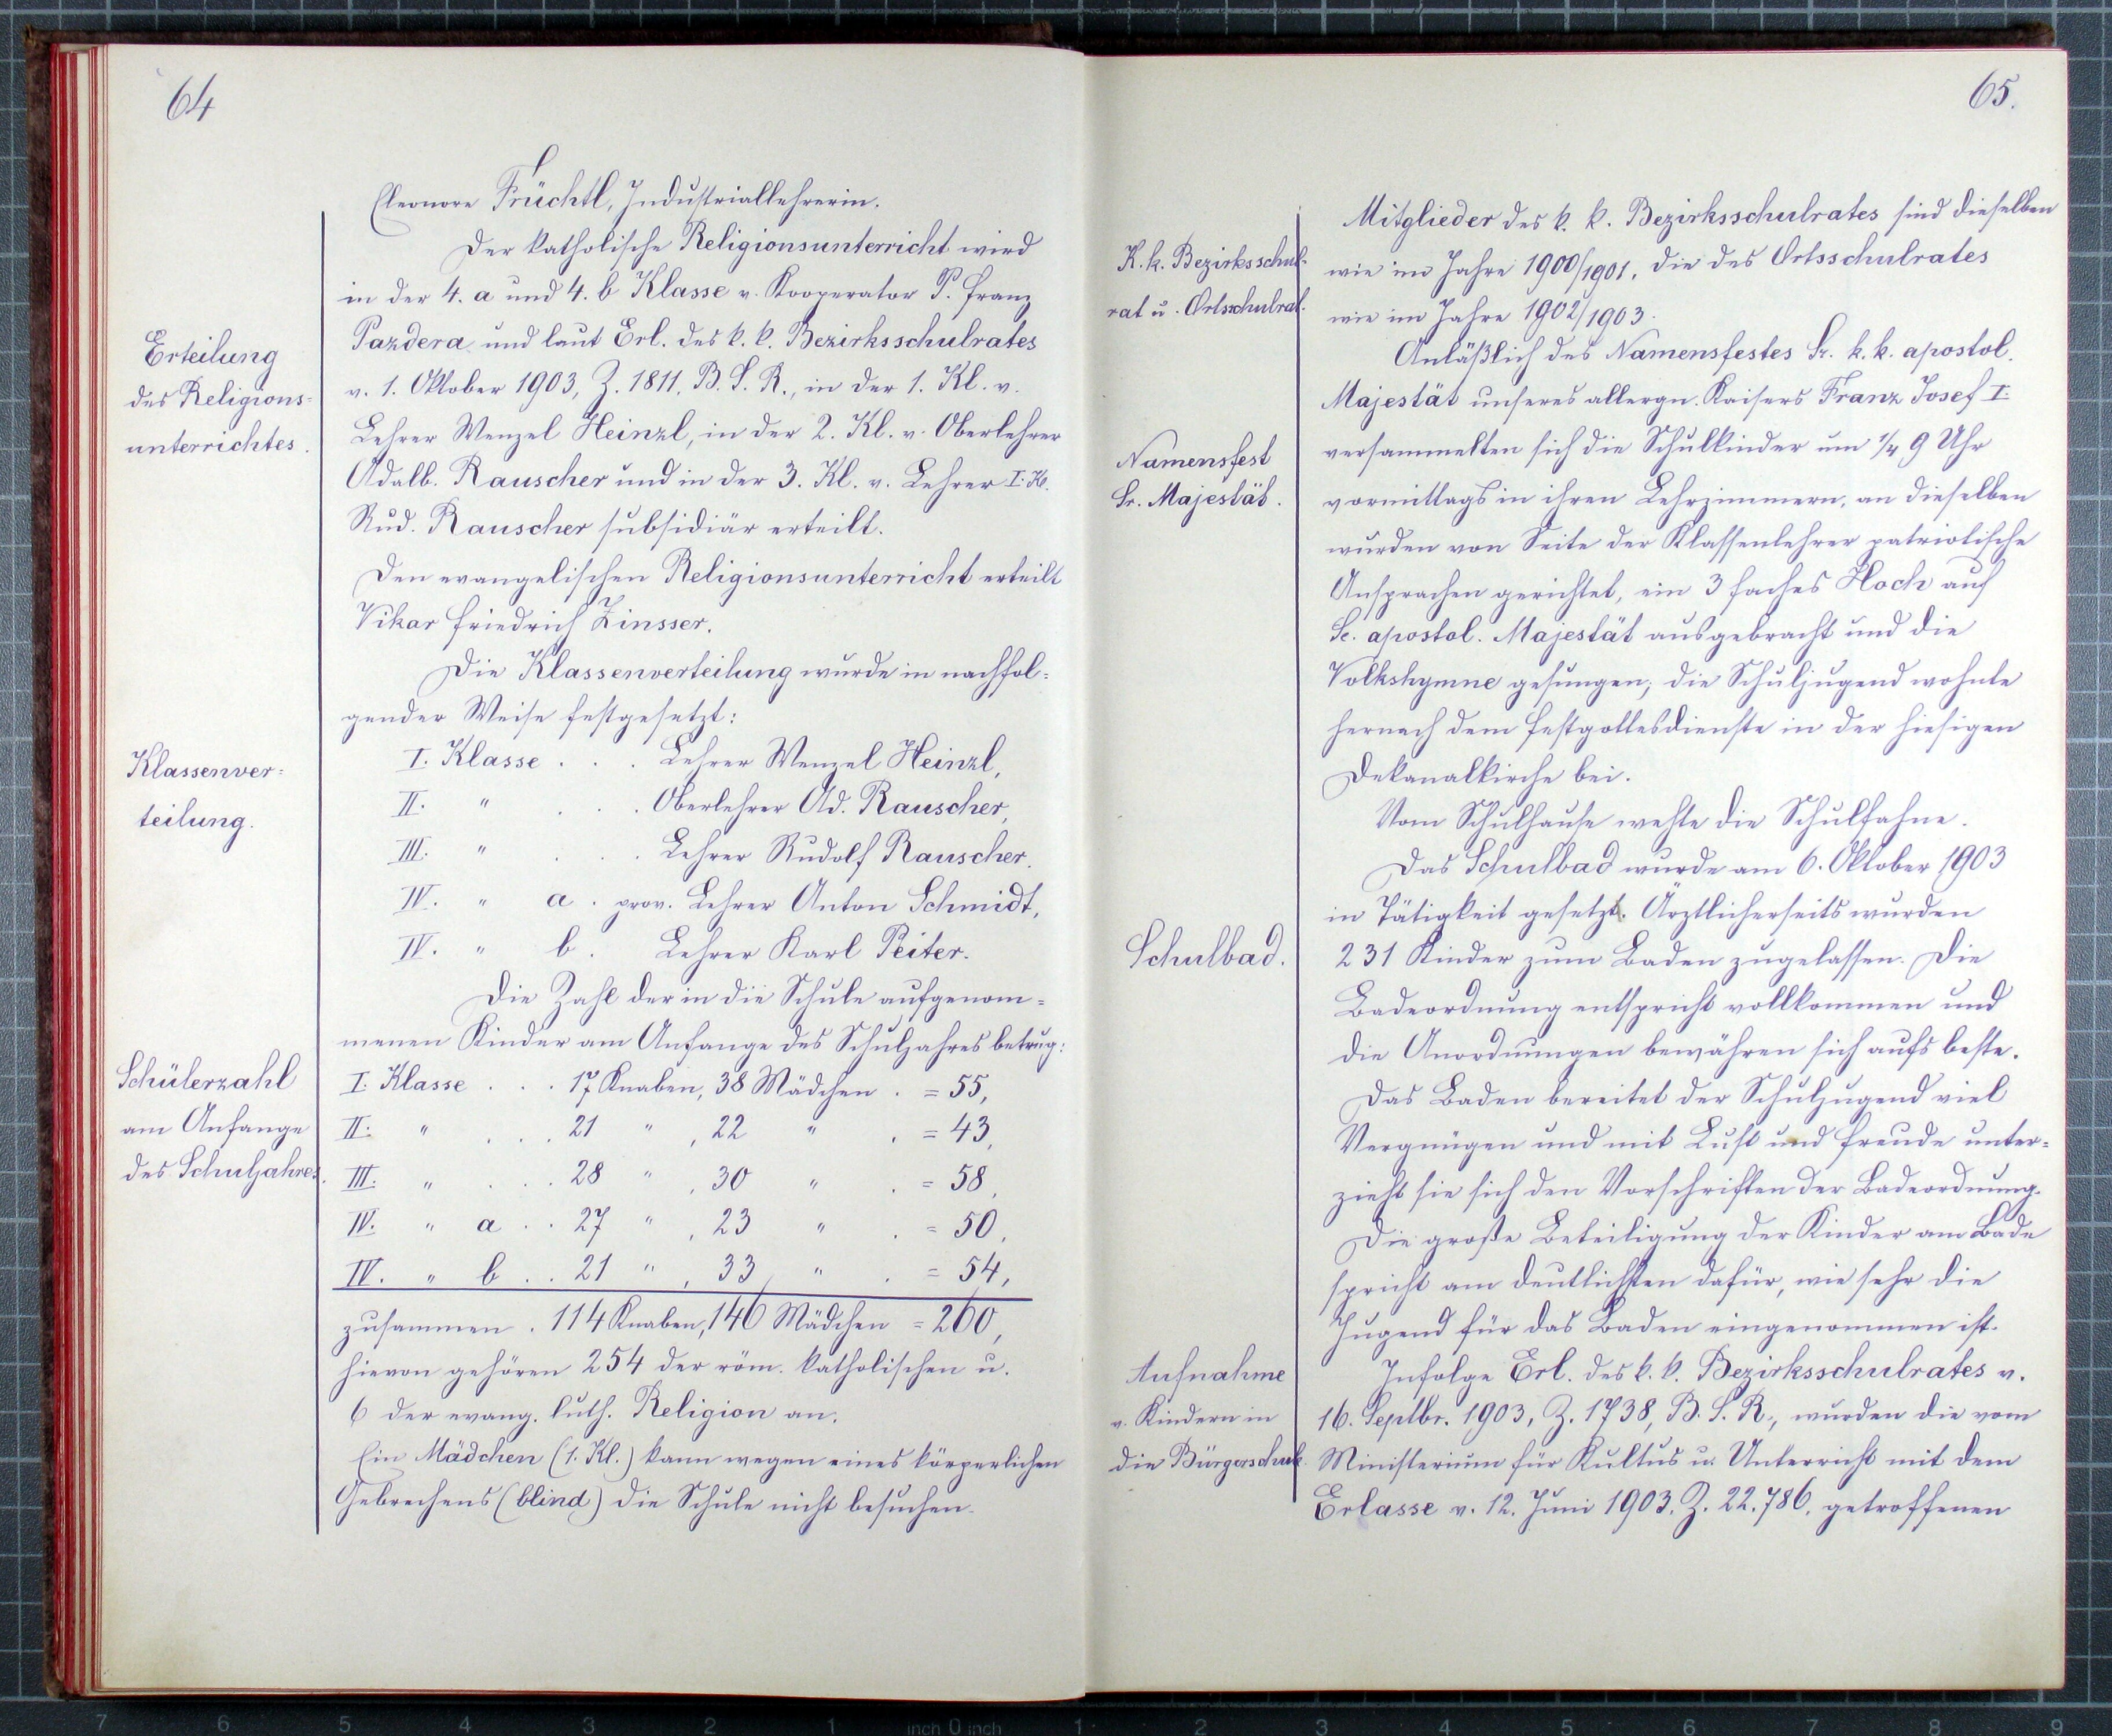 64
Eleonore Früchtl, Industriallehrerin.
Der katholische Religionsunterricht wird
in der 4. a und 4. b Klasse v. Kooperator P. Franz
Pazdera und laut Erl. des k. k. Bezirksschulrates
v. 1. Oktober 1903, Z. 1811, B. S. R., in der 1. Kl. v.
Lehrer Wenzel Heinzl, in der 2. Kl. v. Oberlehrer
Adalb. Rauscher und in der 3. Kl. v. Lehrer I. Kl.
Rud. Rauscher subsidiär erteilt.
Den evangelischen Religionsunterricht erteilt
Vikar Friedrich Zinsser.
Erteilung
des Religions=
unterrichtes.
Die Klassenverteilung wurde in nachfol=
gender Weise festgesetzt:
I. Klasse . . . Lehrer Wenzel Heinzl,
II. " . . . Oberlehrer Ad. Rauscher,
III. " . . . Lehrer Rudolf Rauscher.
IV. " a . prov. Lehrer Anton Schmidt,
IV. " b . Lehrer Karl Peiter.
Klassenver=
teilung.
Die Zahl der in die Schule aufgenom=
menen Kinder am Anfange des Schuljahres betrug:
I. Klasse . . . 17 Knaben, 38 Mädchen . = 55,
II. " . . . 21 " , 22 " . = 43,
III. " . . . 28 " , 30 " . = 58,
IV. " a . . 27 " , 23 " . = 50,
IV. " b . . 21 " , 33 " . = 54,
zusammen . 114 Knaben, 146 Mädchen = 260,
hievon gehören 254 der röm. katholischen u.
6 der evang. luth. Religion an.
Ein Mädchen (1. Kl.) kann wegen eines körperlichen
Gebrechens (blind) die Schule nicht besuchen.
Schülerzahl
am Anfange
des Schuljahres.
65.
Mitglieder des k. k. Bezirksschulrates sind dieselben
wie im Jahre 1900/1901, die des Ortsschulrates
wie im Jahre 1902/1903.
K. k. Bezirksschul=
rat u. Ortsschulrat.
Anläßlich des Namensfestes Sr. k. k. apostol.
Majestät unseres allergn. Kaisers Franz Josef I.
versammelten sich die Schulkinder um 1/4 9 Uhr
vormittags in ihren Lehrzimmern, an dieselben
wurden von Seite der Klassenlehrer patriotische
Ansprachen gerichtet, ein 3 faches Hoch auf
Se. apostol. Majestät ausgebracht und die
Volkshymne gesungen; die Schuljugend wohnte
hernach dem Festgottesdienste in der hiesigen
Dekanalkirche bei.
Vom Schulhause wehte die Schulfahne.
Namensfest
Sr. Majestät.
Das Schulbad wurde am 6. Oktober 1903
in Tätigkeit gesetzt. Ärztlicherseits wurden
231 Kinder zum Baden zugelassen. Die
Badeordnung entspricht vollkommen und
die Anordnungen bewähren sich aufs beste.
Das Baden bereitet der Schuljugend viel
Vergnügen und mit Lust und Freude unter=
zieht sie sich den Vorschriften der Badeordnung.
Die große Beteiligung der Kinder am Bade
spricht am deutlichsten dafür, wie sehr die
Jugend für das Baden eingenommen ist.
Schulbad.
Infolge Erl. des k. k. Bezirksschulrates v.
16. Septbr. 1903, Z. 1738, B. S. R., wurden die vom
Ministerium für Kultus u. Unterricht mit dem
Erlasse v. 12. Juni 1903, Z. 22.786, getroffenen
Aufnahme
v. Kindern in
die Bürgerschule.
7 6 5 4 3 2 1 inch 0 inch 1 2 3 4 5 6 7 8 9